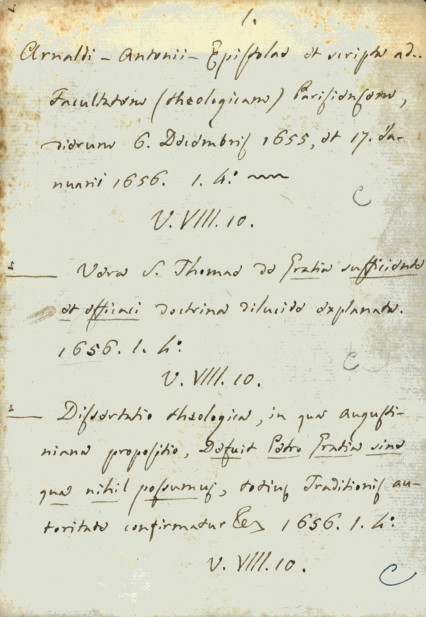 1.
Arnaldi - Antonii - Epistolae et scripta ad
Facultatem (theologicam) Parisiensem,
dierum 6. Decembris 1655, et 17. Ja-
nuarii 1656. 1. 4º.
C
V. VIII. 10.
Vera S. Thomae de Gratia sufficiente
et efficaci doctrina dilucide explanata.
1656. 1. 4º.
C
V. VIII. 10.
Dissertatio theologica, in qua Augusti-
niana propositio, Defuit Petro Gratia sine
qua nihil possumus, totius Traditionis au-
toritate confirmatur &c 1656. 1. 4º.
V. VIII. 10.
C